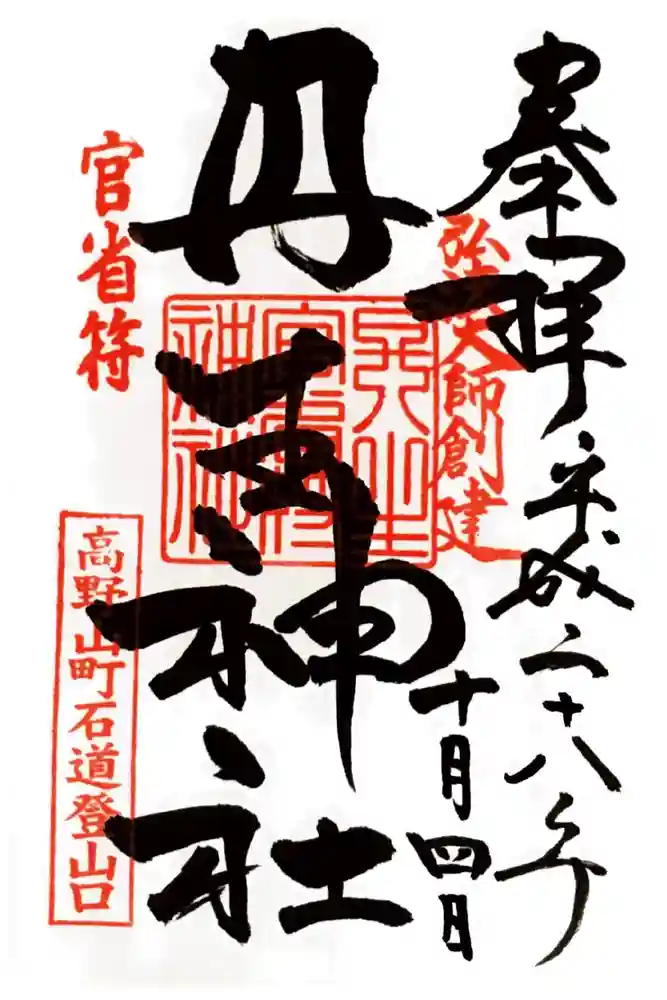 奉拝
平成二十八年
十月四日
弘法大師創建
丹生神社
官省符
高野山町石道登山口